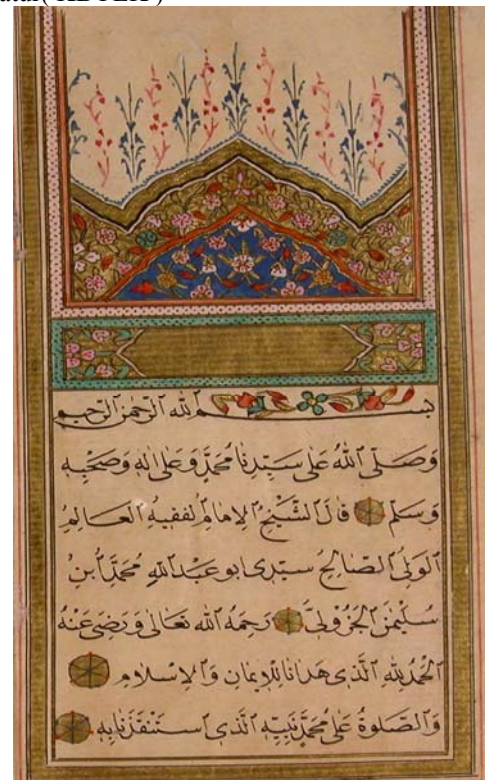 بسم الله الرحمن الرحيم
وَصَلَّى اللهُ عَلٰى سَيِّدِنَا مُحَمَّدٍ وَعَلٰى اٰلِهِ وَصَحْبِهِ
وَسَلَّمَ قَالَ الشَّيْخُ الْاِمَامُ الْفَقِيهُ الْعَالِمُ
الْوَلِيُّ الصَّالِحُ سَيِّدِى ابو عَبْدِ اللهِ مُحَمَّدُ ابْنُ
سُلَيْمٰنَ الْجَزُولِيُّ رَحِمَهُ اللهُ تَعَالٰى وَرَضِيَ عَنْهُ
اَلْحَمْدُ لِلّٰهِ الَّذِى هَدَانَا لِلْاِيمَانِ وَالْاِسْلَامِ
وَالصَّلٰوةُ عَلٰى مُحَمَّدٍ نَبِيِّهِ الَّذِى اسْتَنْقَذَنَا بِهِ